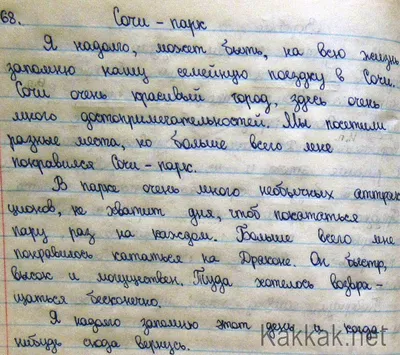 68. Сочи - парк
Я надолго, может быть, на всю жизнь
запомню нашу семейную поездку в Сочи.
Сочи очень красивый город, здесь очень
много достопримегательностей. Мы посетили
разные места, но больше всего мне
понравился Сочи - парк.
В парке очень много необычных аттрак
ционов, не хватит дня, чтоб покататься
пару раз на каждом. Больше всего мне
понравилось кататься на Драконе. Он быстр,
высок и могуществен. Туда хотелось возвра -
щаться бесконечно.
Я надолго запомню этот день и когда
нибудь сюда вернусь.
Kakkak.net